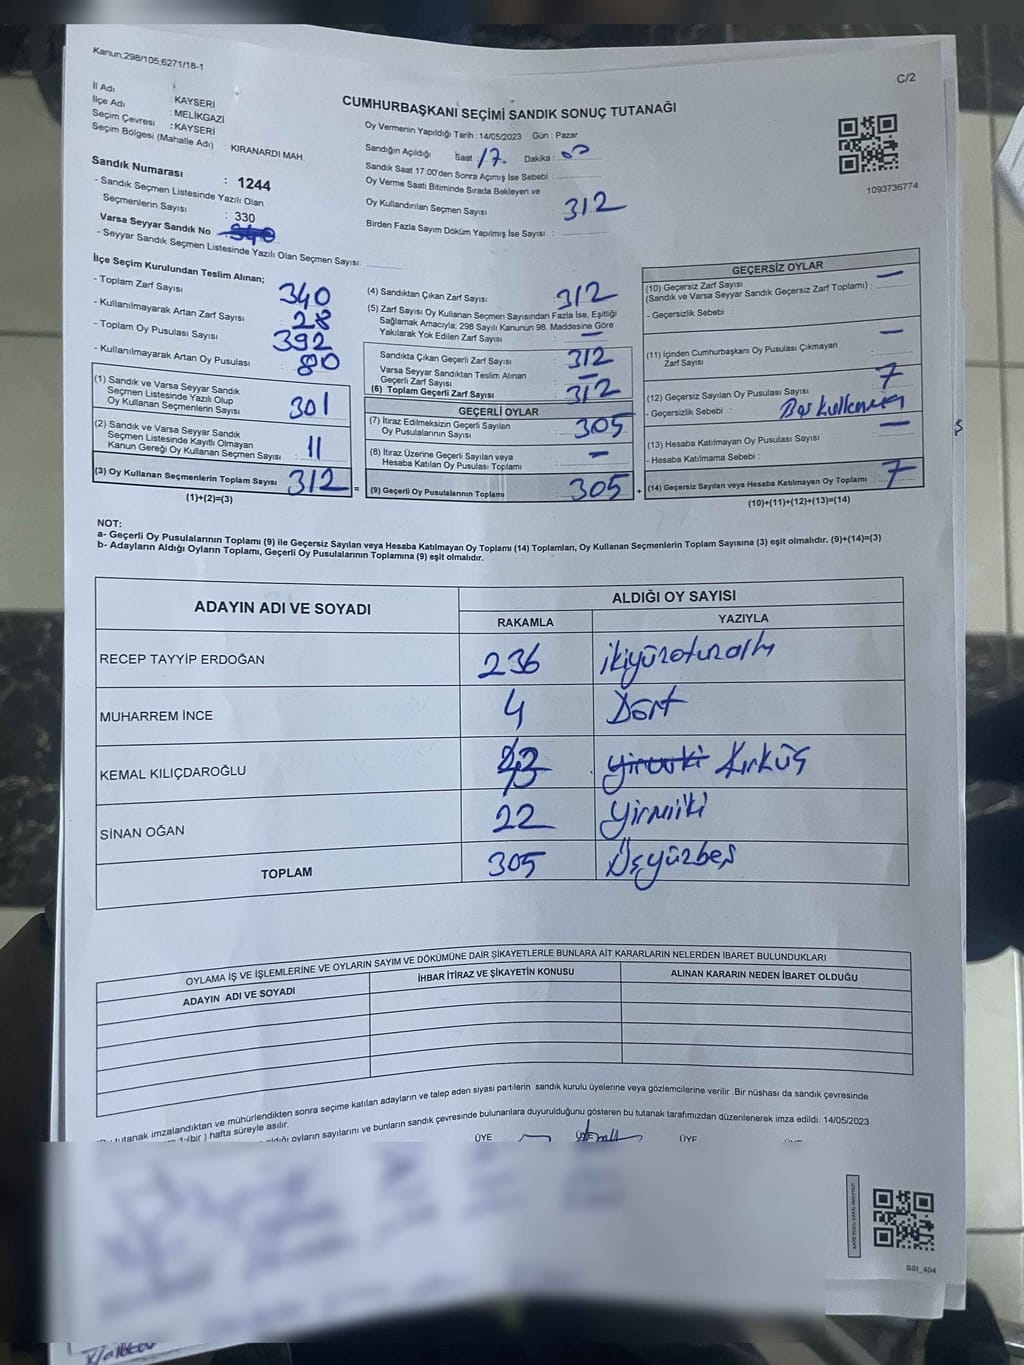 Kanun;298/105;6271/18-1
C/2
İl Adı : KAYSERİ
İlçe Adı : MELİKGAZİ
Seçim Çevresi : KAYSERİ
Seçim Bölgesi (Mahalle Adı) : KIRANARDI MAH.
CUMHURBAŞKANI SEÇİMİ SANDIK SONUÇ TUTANAĞI
Oy Vermenin Yapıldığı Tarih : 14/05/2023 Gün : Pazar
Sandığın Açıldığı Saat : 17. Dakika : 00
Sandık Saat 17.00'den Sonra Açımış İse Sebebi :
Oy Verme Saati Bitiminde Sırada Bekleyen ve
Oy Kullandırılan Seçmen Sayısı : 312
Birden Fazla Sayım Döküm Yapılmış İse Sayısı :
1093736774
Sandık Numarası : 1244
- Sandık Seçmen Listesinde Yazılı Olan
Seçmenlerin Sayısı : 330
Varsa Seyyar Sandık No
- Seyyar Sandık Seçmen Listesinde Yazılı Olan Seçmen Sayısı:
İlçe Seçim Kurulundan Teslim Alınan;
- Toplam Zarf Sayısı 340
- Kullanılmayarak Artan Zarf Sayısı 28
- Toplam Oy Pusulası Sayısı 392
- Kullanılmayarak Artan Oy Pusulası : 80
(1) Sandık ve Varsa Seyyar Sandık
Seçmen Listesinde Yazılı Olup
Oy Kullanan Seçmenlerin Sayısı : 301
(2) Sandık ve Varsa Seyyar Sandık
Seçmen Listesinde Kayıtlı Olmayan
Kanun Gereği Oy Kullanan Seçmen Sayısı : 11
(3) Oy Kullanan Seçmenlerin Toplam Sayısı 312 =
(1)+(2)=(3)
(4) Sandıktan Çıkan Zarf Sayısı : 312
(5) Zarf Sayısı Oy Kullanan Seçmen Sayısından Fazla İse, Eşitliği
Sağlamak Amacıyla; 298 Sayılı Kanunun 98. Maddesine Göre
Yakılarak Yok Edilen Zarf Sayısı : –
Sandıkta Çıkan Geçerli Zarf Sayısı : 312
Varsa Seyyar Sandıktan Teslim Alınan
Geçerli Zarf Sayısı : –
(6) Toplam Geçerli Zarf Sayısı : 312
GEÇERLİ OYLAR
(7) İtiraz Edilmeksizin Geçerli Sayılan
Oy Pusulalarının Sayısı : 305
(8) İtiraz Üzerine Geçerli Sayılan veya
Hesaba Katılan Oy Pusulası Toplamı : –
(9) Geçerli Oy Pusulalarının Toplamı : 305 +
GEÇERSİZ OYLAR
(10) Geçersiz Zarf Sayısı –
(Sandık ve Varsa Seyyar Sandık Geçersiz Zarf Toplamı) :
- Geçersizlik Sebebi :
(11) İçinden Cumhurbaşkanı Oy Pusulası Çıkmayan
Zarf Sayısı : –
(12) Geçersiz Sayılan Oy Pusulası Sayısı : 7
- Geçersizlik Sebebi :
(13) Hesaba Katılmayan Oy Pusulası Sayısı : –
- Hesaba Katılmama Sebebi :
(14) Geçersiz Sayılan veya Hesaba Katılmayan Oy Toplamı : 7
(10)+(11)+(12)+(13)=(14)
NOT:
a- Geçerli Oy Pusulalarının Toplamı (9) ile Geçersiz Sayılan veya Hesaba Katılmayan Oy Toplamı (14) Toplamları, Oy Kullanan Seçmenlerin Toplam Sayısına (3) eşit olmalıdır. (9)+(14)=(3)
b- Adayların Aldığı Oyların Toplamı, Geçerli Oy Pusulalarının Toplamına (9) eşit olmalıdır.
ADAYIN ADI VE SOYADI
ALDIĞI OY SAYISI
RAKAMLA YAZIYLA
RECEP TAYYİP ERDOĞAN 236 ikiyüzotuzaltı
MUHARREM İNCE 4 Dört
KEMAL KILIÇDAROĞLU 43 Kırküş
SİNAN OĞAN 22 Yirmiiki
TOPLAM 305 Üçyüzbeş
OYLAMA İŞ VE İŞLEMLERİNE VE OYLARIN SAYIM VE DÖKÜMÜNE DAİR ŞİKAYETLERLE BUNLARA AİT KARARLARIN NELERDEN İBARET BULUNDUKLARI
ADAYIN ADI VE SOYADI İHBAR İTİRAZ VE ŞİKAYETİN KONUSU ALINAN KARARIN NEDEN İBARET OLDUĞU
tutanak imzalandıktan ve mühürlendikten sonra seçime katılan adayların ve talep eden siyasi partilerin sandık kurulu üyelerine veya gözlemcilerine verilir .Bir nüshası da sandık çevresinde
1-(bir ) hafta süreyle asılır.
aldığı oyların sayılarını ve bunların sandık çevresinde bulunanlara duyurulduğunu gösteren bu tutanak tarafımızdan düzenlenerek imza edildi. 14/05/2023
ÜYE ÜYE
SSI_404